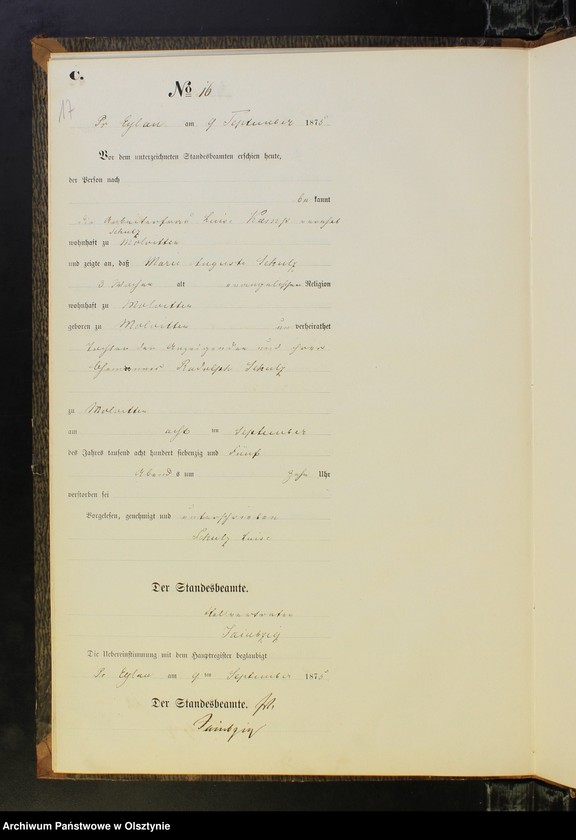 C.
No 16
17
Pr Eylau am 9 September 1875
Vor dem unterzeichneten Standesbeamten erschien heute,
der Person nach
be kannt
die Arbeiterfrau Luise
Schulz
wohnhaft zu Molwitten
und zeigte an, daß Marie Auguste Schulz
3 Wochen alt evangelischer Religion
wohnhaft zu Molwitten
geboren zu Molwitten un verheirathet
Tochter der Anzeigenden und ihres
Ehemannes Rudolph Schulz
zu Molwitten
am acht ten September
des Jahres tausend acht hundert siebenzig und fünf
Abend s um zehn Uhr
verstorben sei
Vorgelesen, genehmigt und unterschrieben
Schulz Luise
Der Standesbeamte.
Stellvertreter
Die Uebereinstimmung mit dem Hauptregister beglaubigt
Pr Eylau am 9 ten September 1875
Der Standesbeamte.
Archiwum Państwowe w Olsztynie